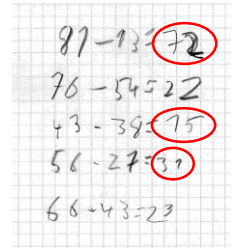 81-13=72
76-54=22
43-38=15
56-27=31
66-43=23